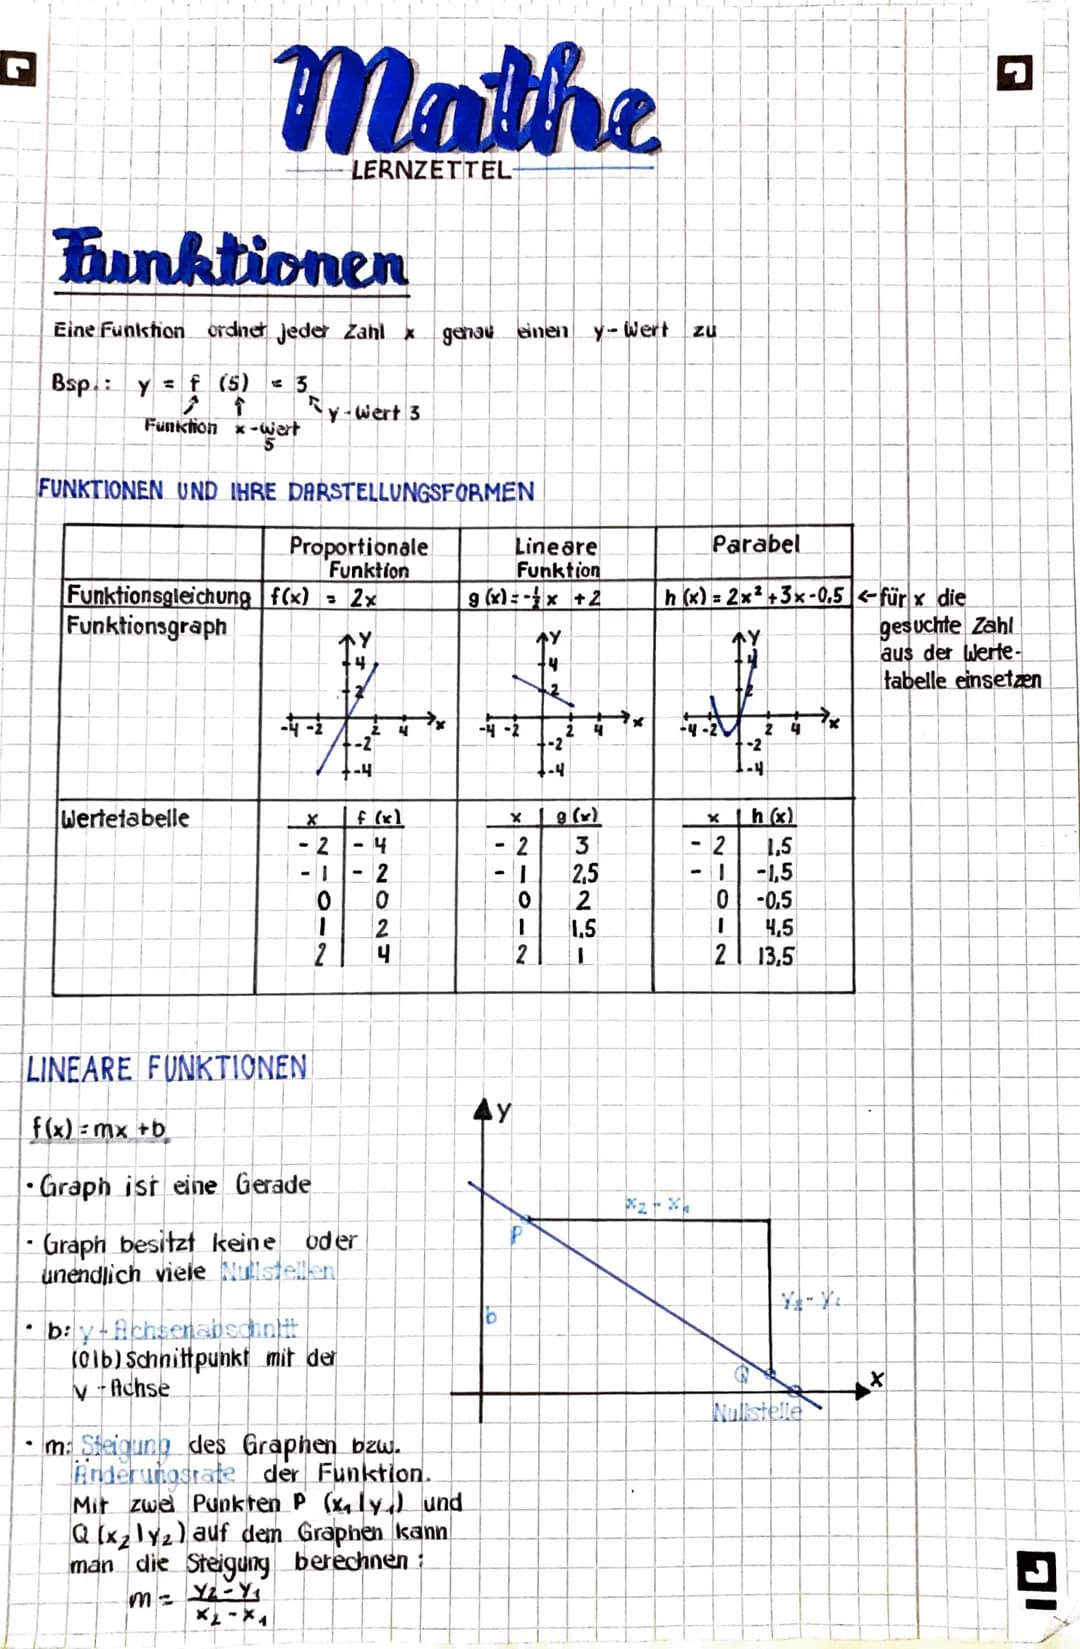 Mathe
LERNZETTEL
Funktionen
Eine Funktion ordnet jeder Zahl x genau einen y-Wert zu
Bsp.: y = f (5) = 3
y-Wert 3
Funktion x-Wert
5
FUNKTIONEN UND IHRE DARSTELLUNGSFORMEN
Proportionale Funktion
Lineare Funktion
Parabel
Funktionsgleichung f(x) = 2x g(x) = -½x +2 h(x) = 2x² +3x-0,5 ← für x die
gesuchte Zahl
aus der Werte-
tabelle einsetzen
Funktionsgraph
y
4
2
-4 -2 2 4 x
-2
-4
y
4
2
-4 -2 2 4 x
-2
-4
y
4
2
-4 -2 2 4 x
-2
-4
Wertetabelle
x f(x) x g(x) x h(x)
-2 -4 -2 3 -2 1,5
-1 -2 -1 2,5 -1 -1,5
0 0 0 2 0 -0,5
1 2 1 1,5 1 4,5
2 4 2 1 2 13,5
LINEARE FUNKTIONEN
f(x) = mx +b
· Graph ist eine Gerade
· Graph besitzt keine oder
unendlich viele Nullstellen
· b: y-Achsenabschnitt
(0|b) Schnittpunkt mit der
y-Achse
· m: Steigung des Graphen bzw.
Änderungsrate der Funktion.
Mit zwei Punkten P (x₁|y₁) und
Q (x₂|y₂) auf dem Graphen kann
man die Steigung berechnen:
m = y₂-y₁
x₂-x₁
y
x₂-x₁
P
y₂-y₁
b
Q
x
Nullstelle